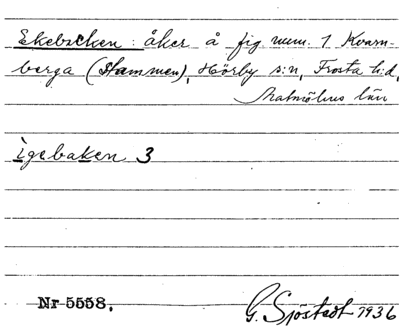 Ekebacken: åker å fig. num. 1 Kvarn-
berga (Stammen), Hörby s:n, Frosta h:d,
Malmöhus län
ìgebaken 3
Nr 5558.
G. Sjöstedt 1936